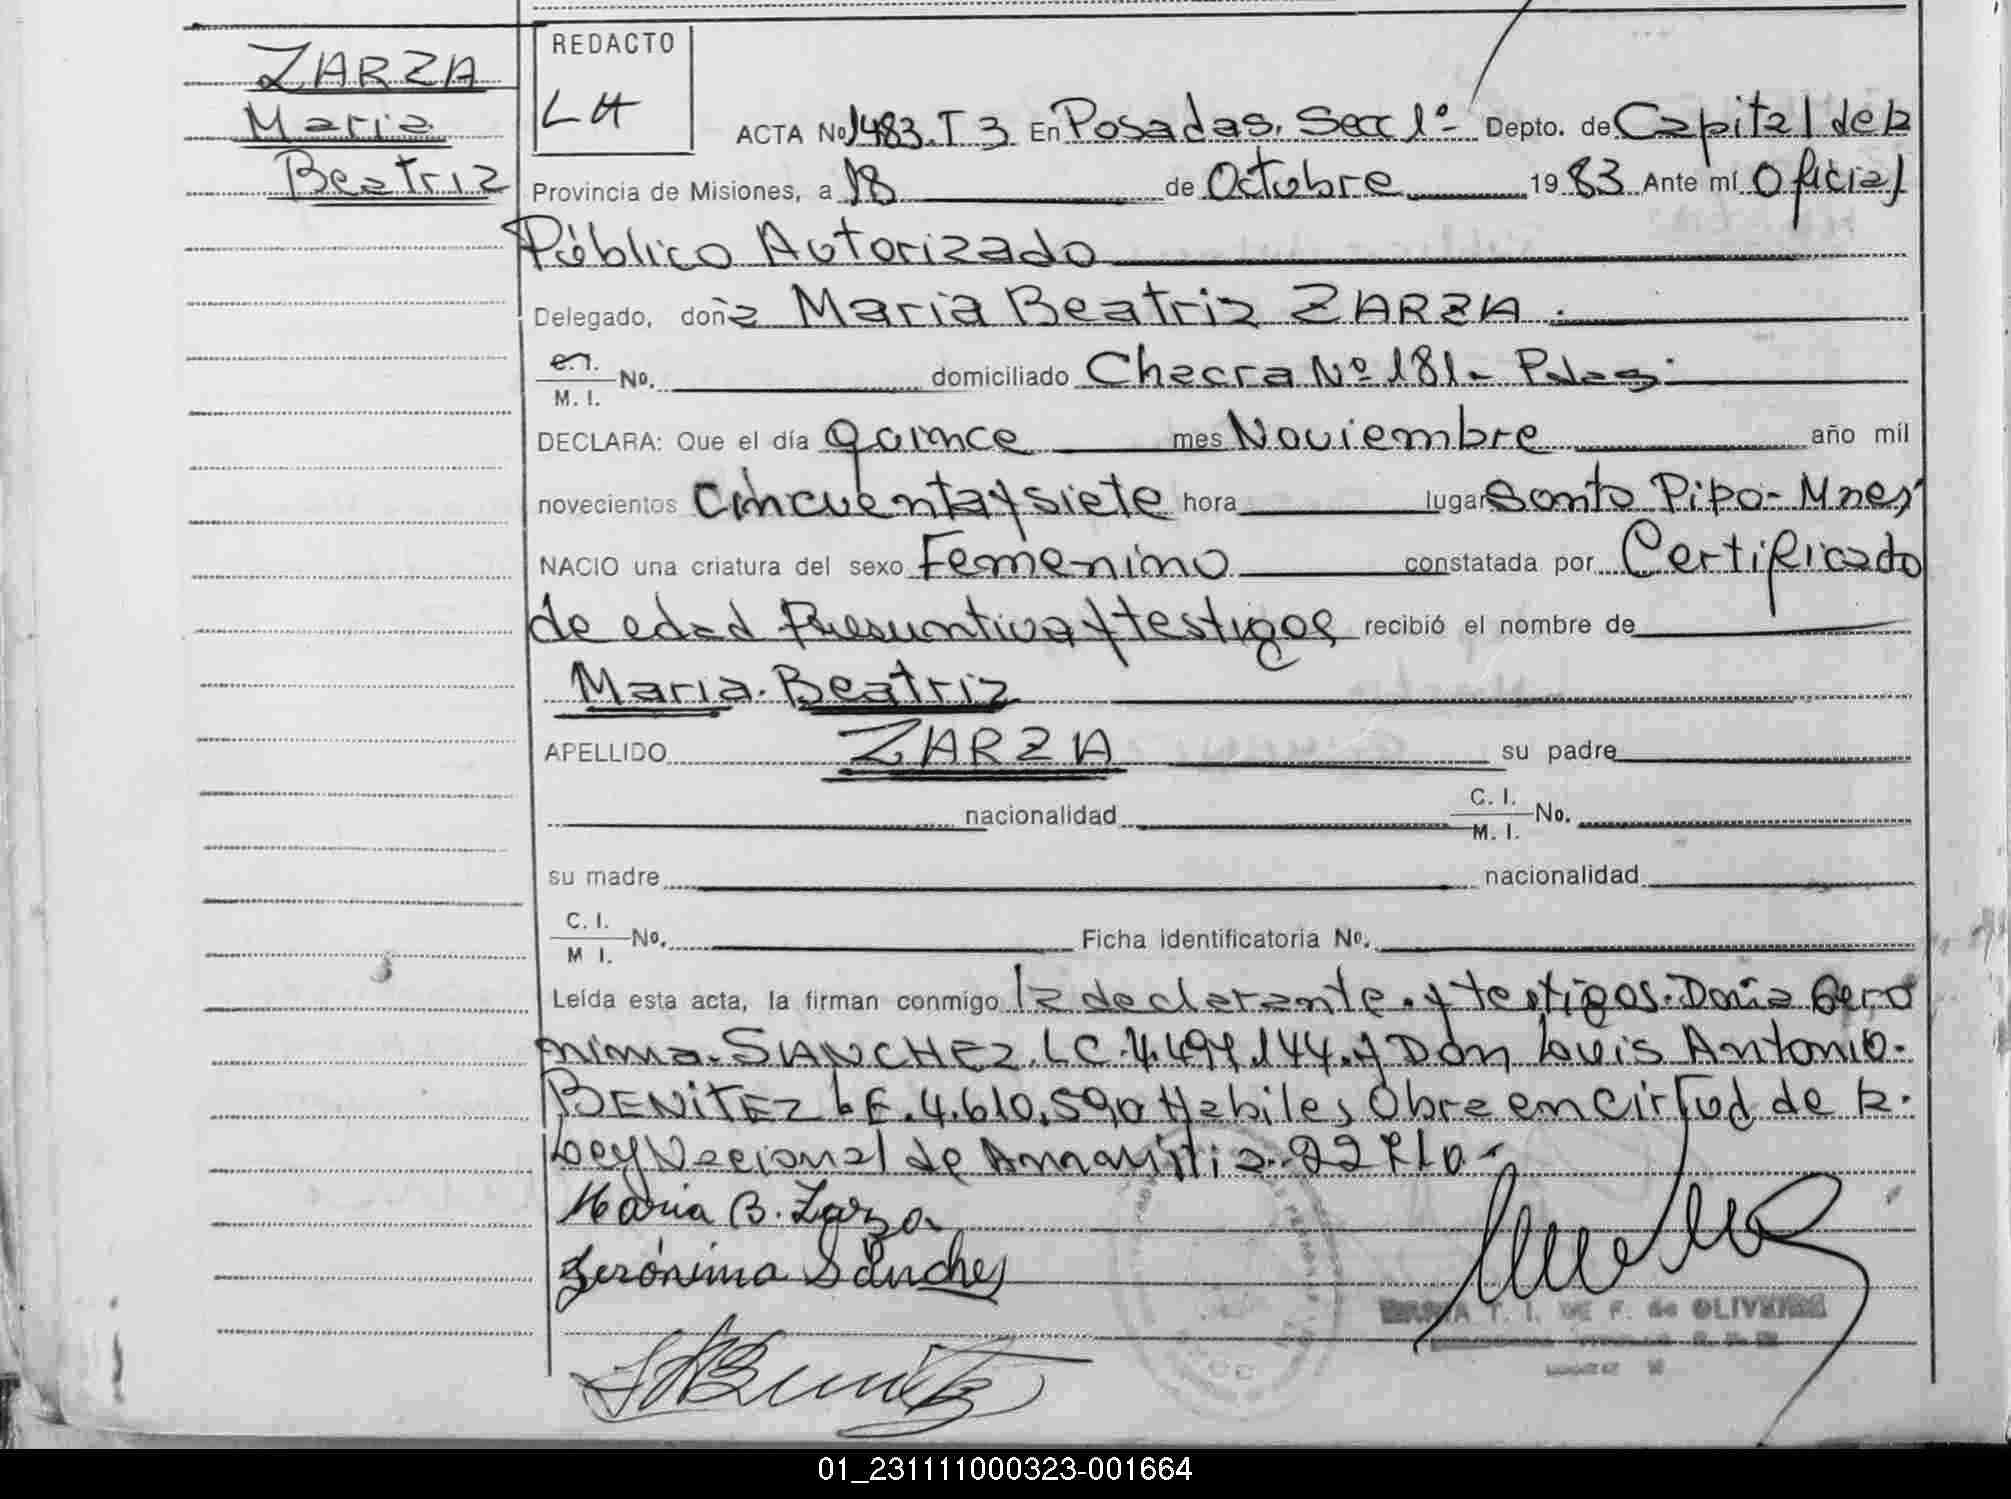 ZARZA
Maria
Beatriz
REDACTO
LH
ACTA Nº 1483. T 3 En Posadas. Secc 1º - Depto. de Capital de la
Provincia de Misiones, a 18 de Octubre 19 83 Ante mí Oficial
Público Autorizado
Delegado, doña Maria Beatriz ZARZA.
C.I. M. I. No. domiciliado Chacra Nº 181 - Pdas.
DECLARA: Que el día quince mes Noviembre año mil
novecientos cincuenta y siete hora lugar Santo Pipo - Mnes
NACIO una criatura del sexo Femenino constatada por Certificado
de edad Presuntiva y testigos recibió el nombre de
Maria. Beatriz
APELLIDO ZARZA su padre
nacionalidad C. I. M. I. No.
su madre nacionalidad
C. I. M I. No. Ficha identificatoria No.
Leída esta acta, la firman conmigo la declarante. y testigos. Doña Gero
nima. SANCHEZ. LC. 144. y Don Luis Antonio.
BENITEZ LE. 4.610.590 Habiles, Obra en cirtud de la.
Ley Nacional de Amnistia. 22710 -
Maria B. Zarza
Gerónima Sánches
LABenitez
T. I. DE F. de OLIVEIRA
01_231111000323-001664